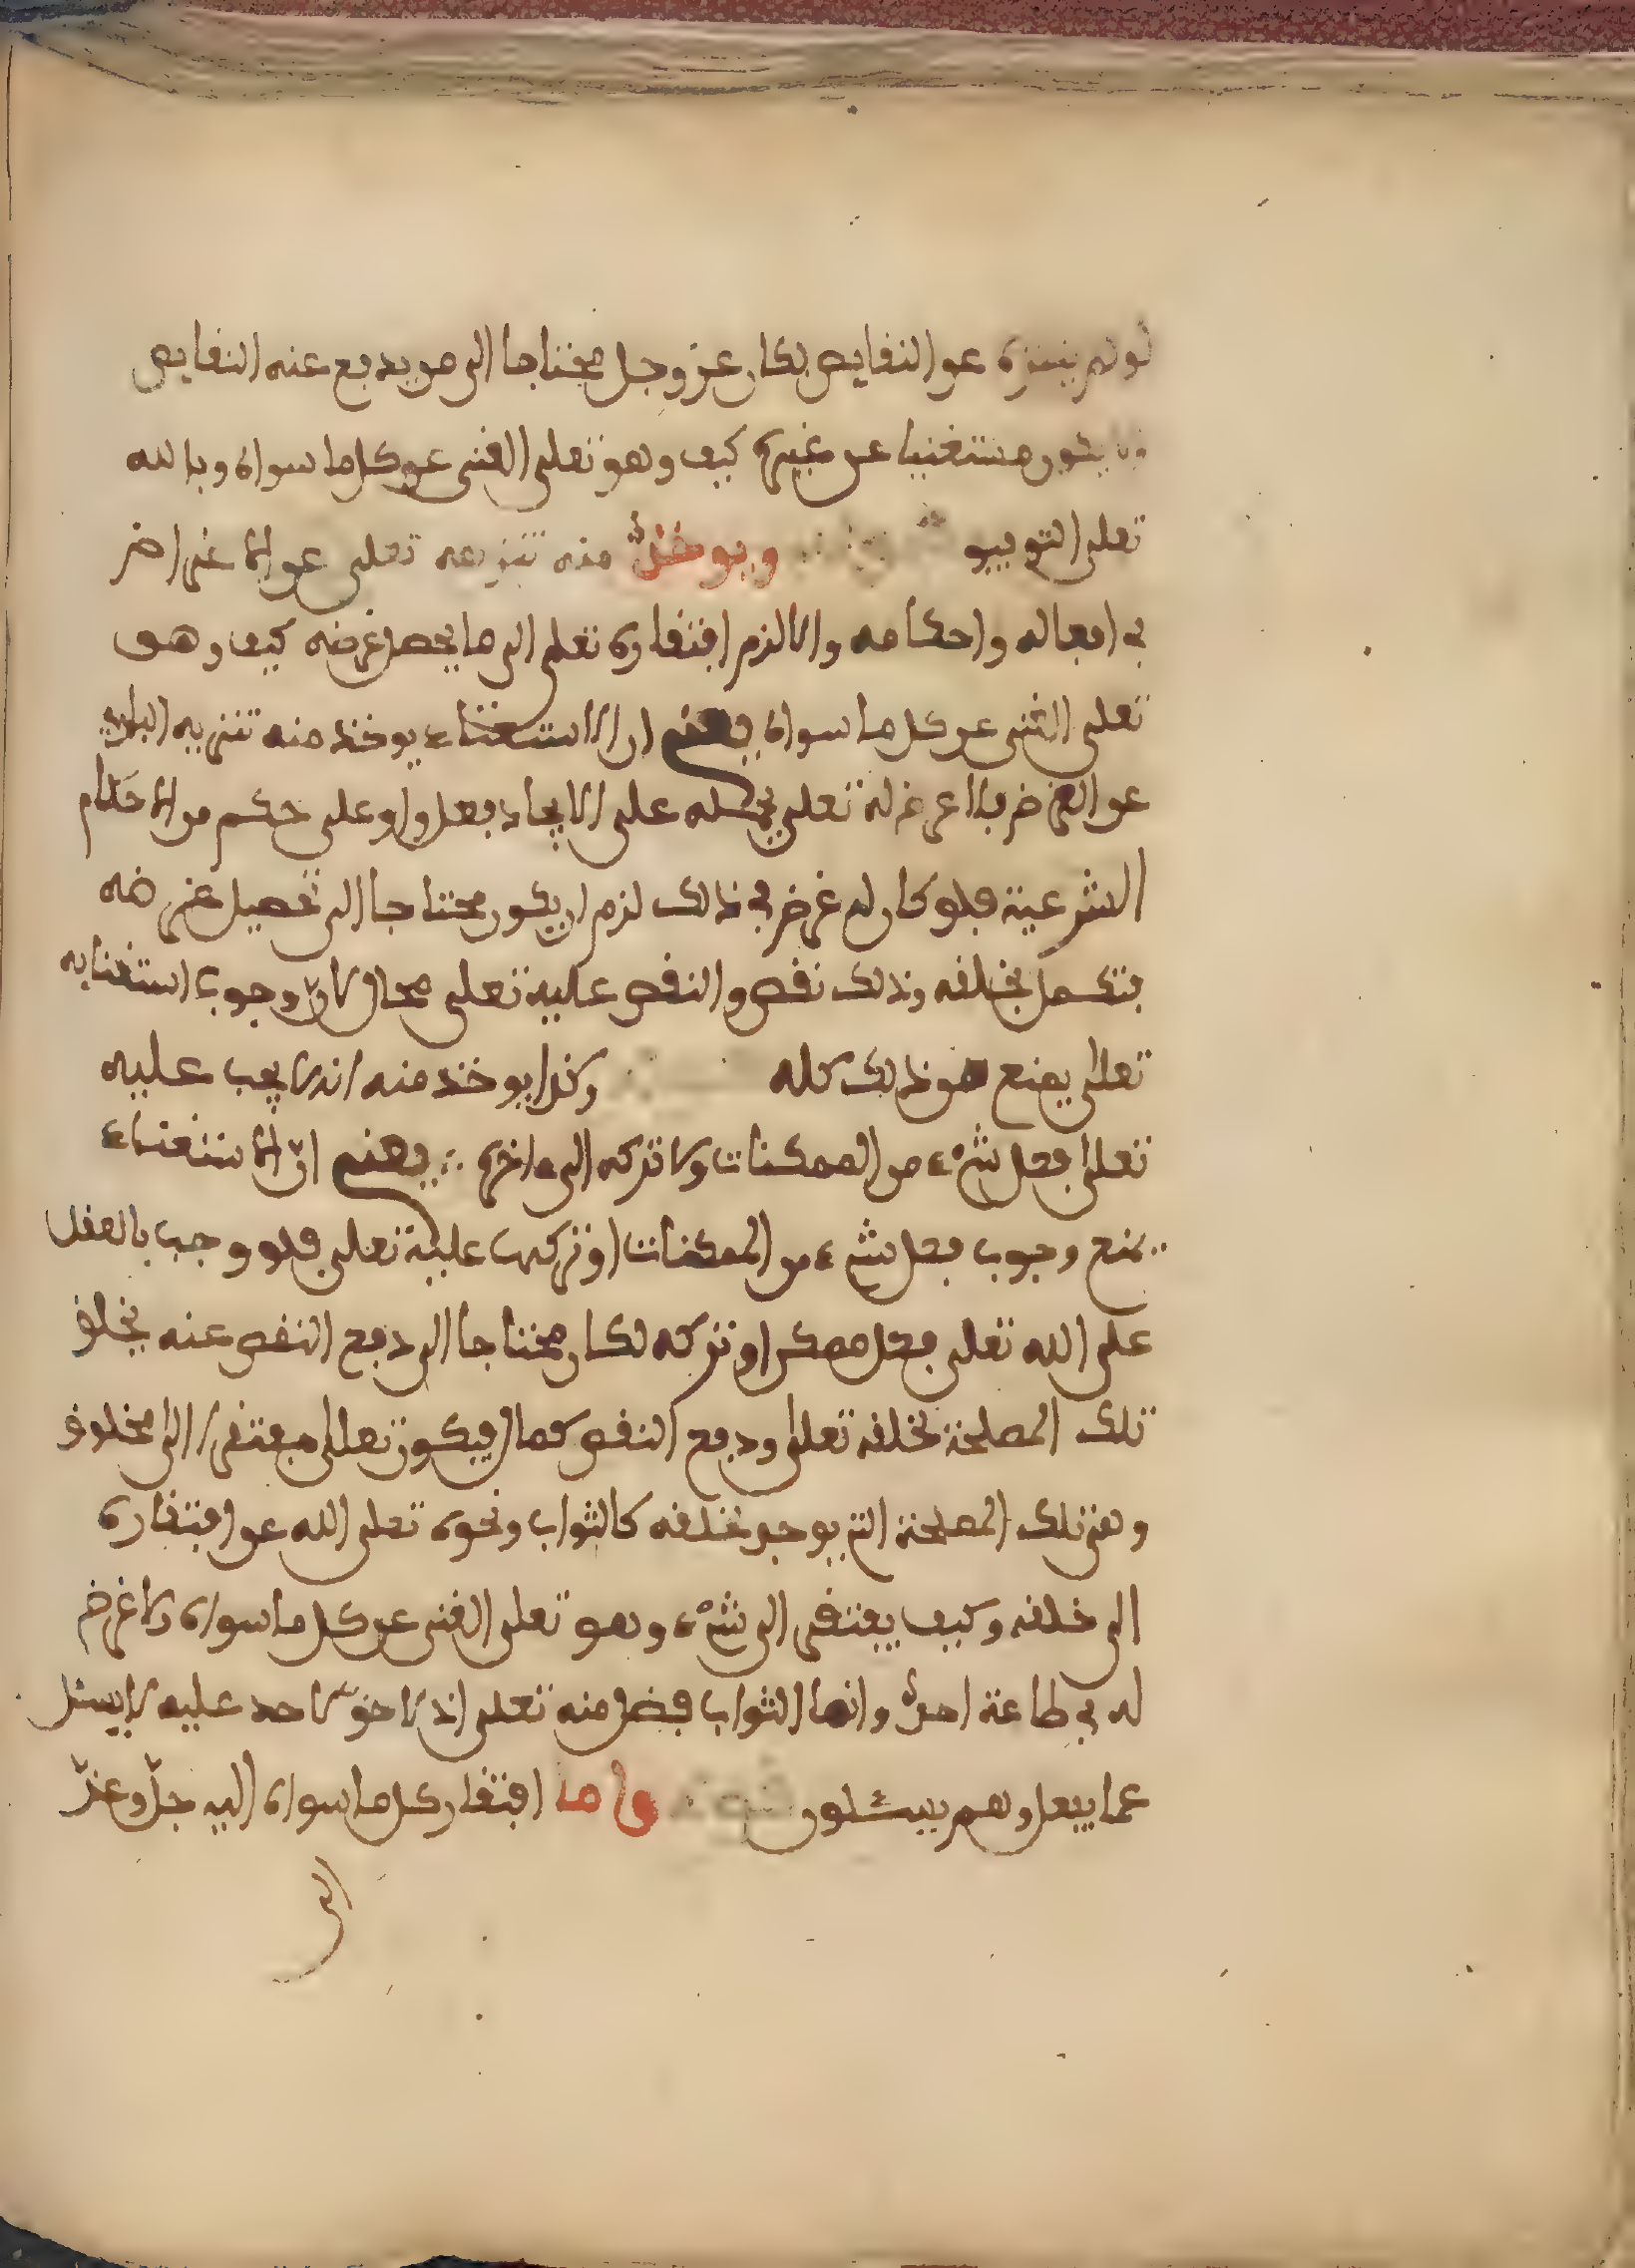 لو لم يتنزه عن النفايص لكان عز وجل محتاجا الى من يدفع عنه النفايص
ولا يكون مستغنيا عن غيره كيف وهو تعلى الغنى عن كل ما سواه وبالله
تعلى التوفيق ويوخذ منه تنزيهه تعلى عن الاغراض
في افعاله واحكامه والا لزم افتقاره تعلى الى ما يحصل غرضه كيف وهو
تعلى الغنى عن كل ما سواه يعني ان الاستغناء يوخذ منه تنزيه البارى
عن الغرض فلا غرض له تعلى يحمله على الايجاد فعل او على حكم من الاحكام
الشرعية فلو كان له غرض في ذالك لزم ان يكون محتاجا الى تحصيل غرضه
فتكمل بخلفه وذلك نقص والنقص عليه تعلى محال لان وجوب استغنايه
تعلى يمنع من ذلك كله وكذا يوخذ منه انه لا يجب عليه
تعلى فعل شيء من الممكنات ولا تركه الى ءاخره يعني ان الاستغناء
يمنع وجوب فعل شيء من الممكنات او تركها عليه تعلى فلو وجب بالعقل
على الله تعلى فعل ممكن او تركه لكان محتاجا الى دفع النقص عنه بخلق
تلك المصلحة لخلقه تعلى ودفع النقص كمال فيكون تعلى مفتقرا الى مخلوق
وهي تلك المصلحة التي يوجد لخلقه كالثواب ونحوه تعلى الله عن افتقاره
الى خلقه وكيف يفتقر الى شيء وهو تعلى الغنى عن كل ما سواه ولا غرض
له في طاعة احد وانما الثواب فضل منه تعلى اذ لا حق لاحد عليه لا يسئل
عما يفعل وهم يسئلون واما افتقار كل ما سواه اليه جل وعز
الى